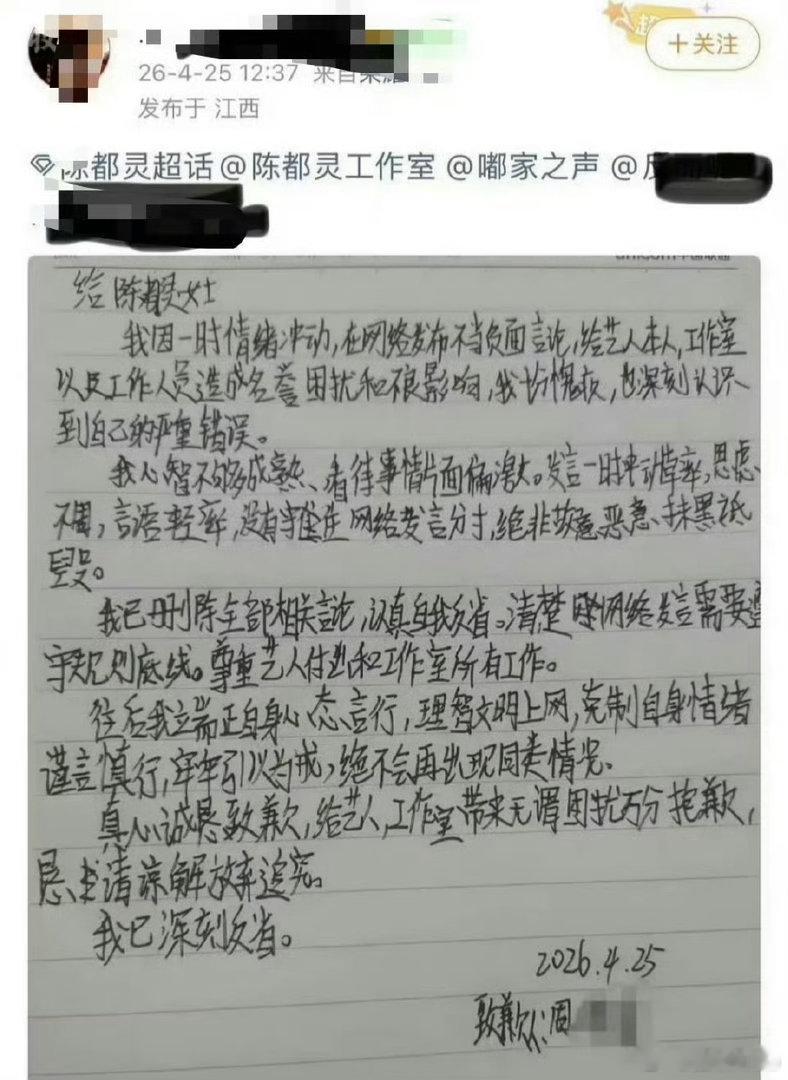 +关注
26-4-25 12:37 来自荣耀
发布于 江西
陈都灵超话@陈都灵工作室 @嘟家之声 @反
给陈都灵女士
我因一时情绪冲动,在网络发布不当负面言论,给艺人本人,工作室
以及工作人员造成名誉困扰和不良影响,我十分愧疚,也深刻认识
到自己的严重错误。
我心智不够成熟、看待事情片面偏激。发言一时冲动草率,思虑
不周,言语轻率,没有守住网络发言分寸,绝非故意恶意、抹黑诋
毁。
我已删除全部相关言论,认真自我反省。清楚网络发言需要遵
守规则底线。尊重艺人付出和工作室所有工作。
往后我立端正自身心态言行,理智文明上网,克制自身情绪
谨言慎行,牢牢引以为戒,绝不会再出现同类情况。
真心诚恳致歉,给艺人,工作室带来无谓困扰万分抱歉,
恳求请谅解放弃追究。
我已深刻反省。
2026.4.25
致歉人:周